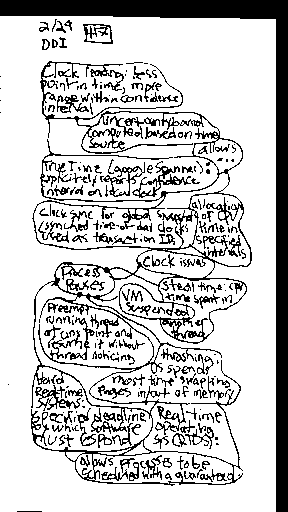 2/24
DDI
Clock reading: less
point in time, more
range within confidence
interval
Uncertainty bound
computed based on time
source
allows
...
TrueTime (google Spanner):
explicitely reports confidence
interval on local clock
allocation
of CPU
time in
specified
intervals
Clock sync for global snapshots
(synched time-of-day clocks
used as transaction IDs)
Clock issues
Process
Pauses
Steal time: CPU
time spent in
another
thread
VM
suspended
Preempt
running thread
at any point and
resume it without
thread noticing
thrashing:
OS spends
most time swapping
pages in/out of memory
Hard
Realtime
systems:
specified deadline
by which software
must respond
Real time
operating
sys (RTOS):
allows process to be
scheduled with a guaranteed